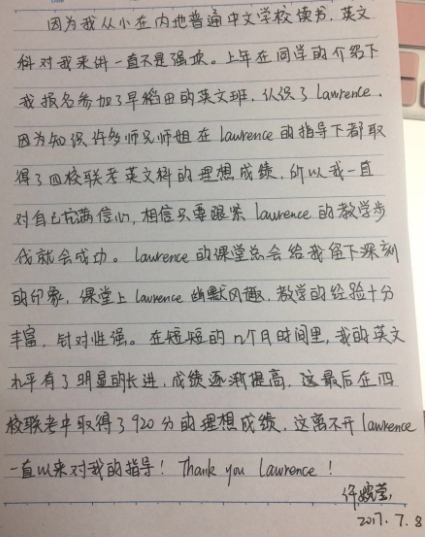 因为我从小在内地普通中文学校读书，英文
科对我来讲一直不是强项。上年在同学的介绍下
我报名参加了早稻田的英文班，认识了Lawrence，
因为知识许多师兄师姐在Lawrence的指导下都取
得了四校联考英文科的理想成绩，所以我一直
对自己充满信心，相信只要跟紧Lawrence的教学步
伐就会成功。Lawrence的课堂总会给我留下深刻
的印象，课堂上Lawrence幽默风趣，教学的经验十分
丰富，针对性强。在短短的n个月时间里，我的英文
水平有了明显的长进，成绩逐渐提高，这最后在四
校联考中取得了920分的理想成绩，这离不开Lawrence
一直以来对我的指导！Thank you Lawrence！
许婉莹
2017.7.8